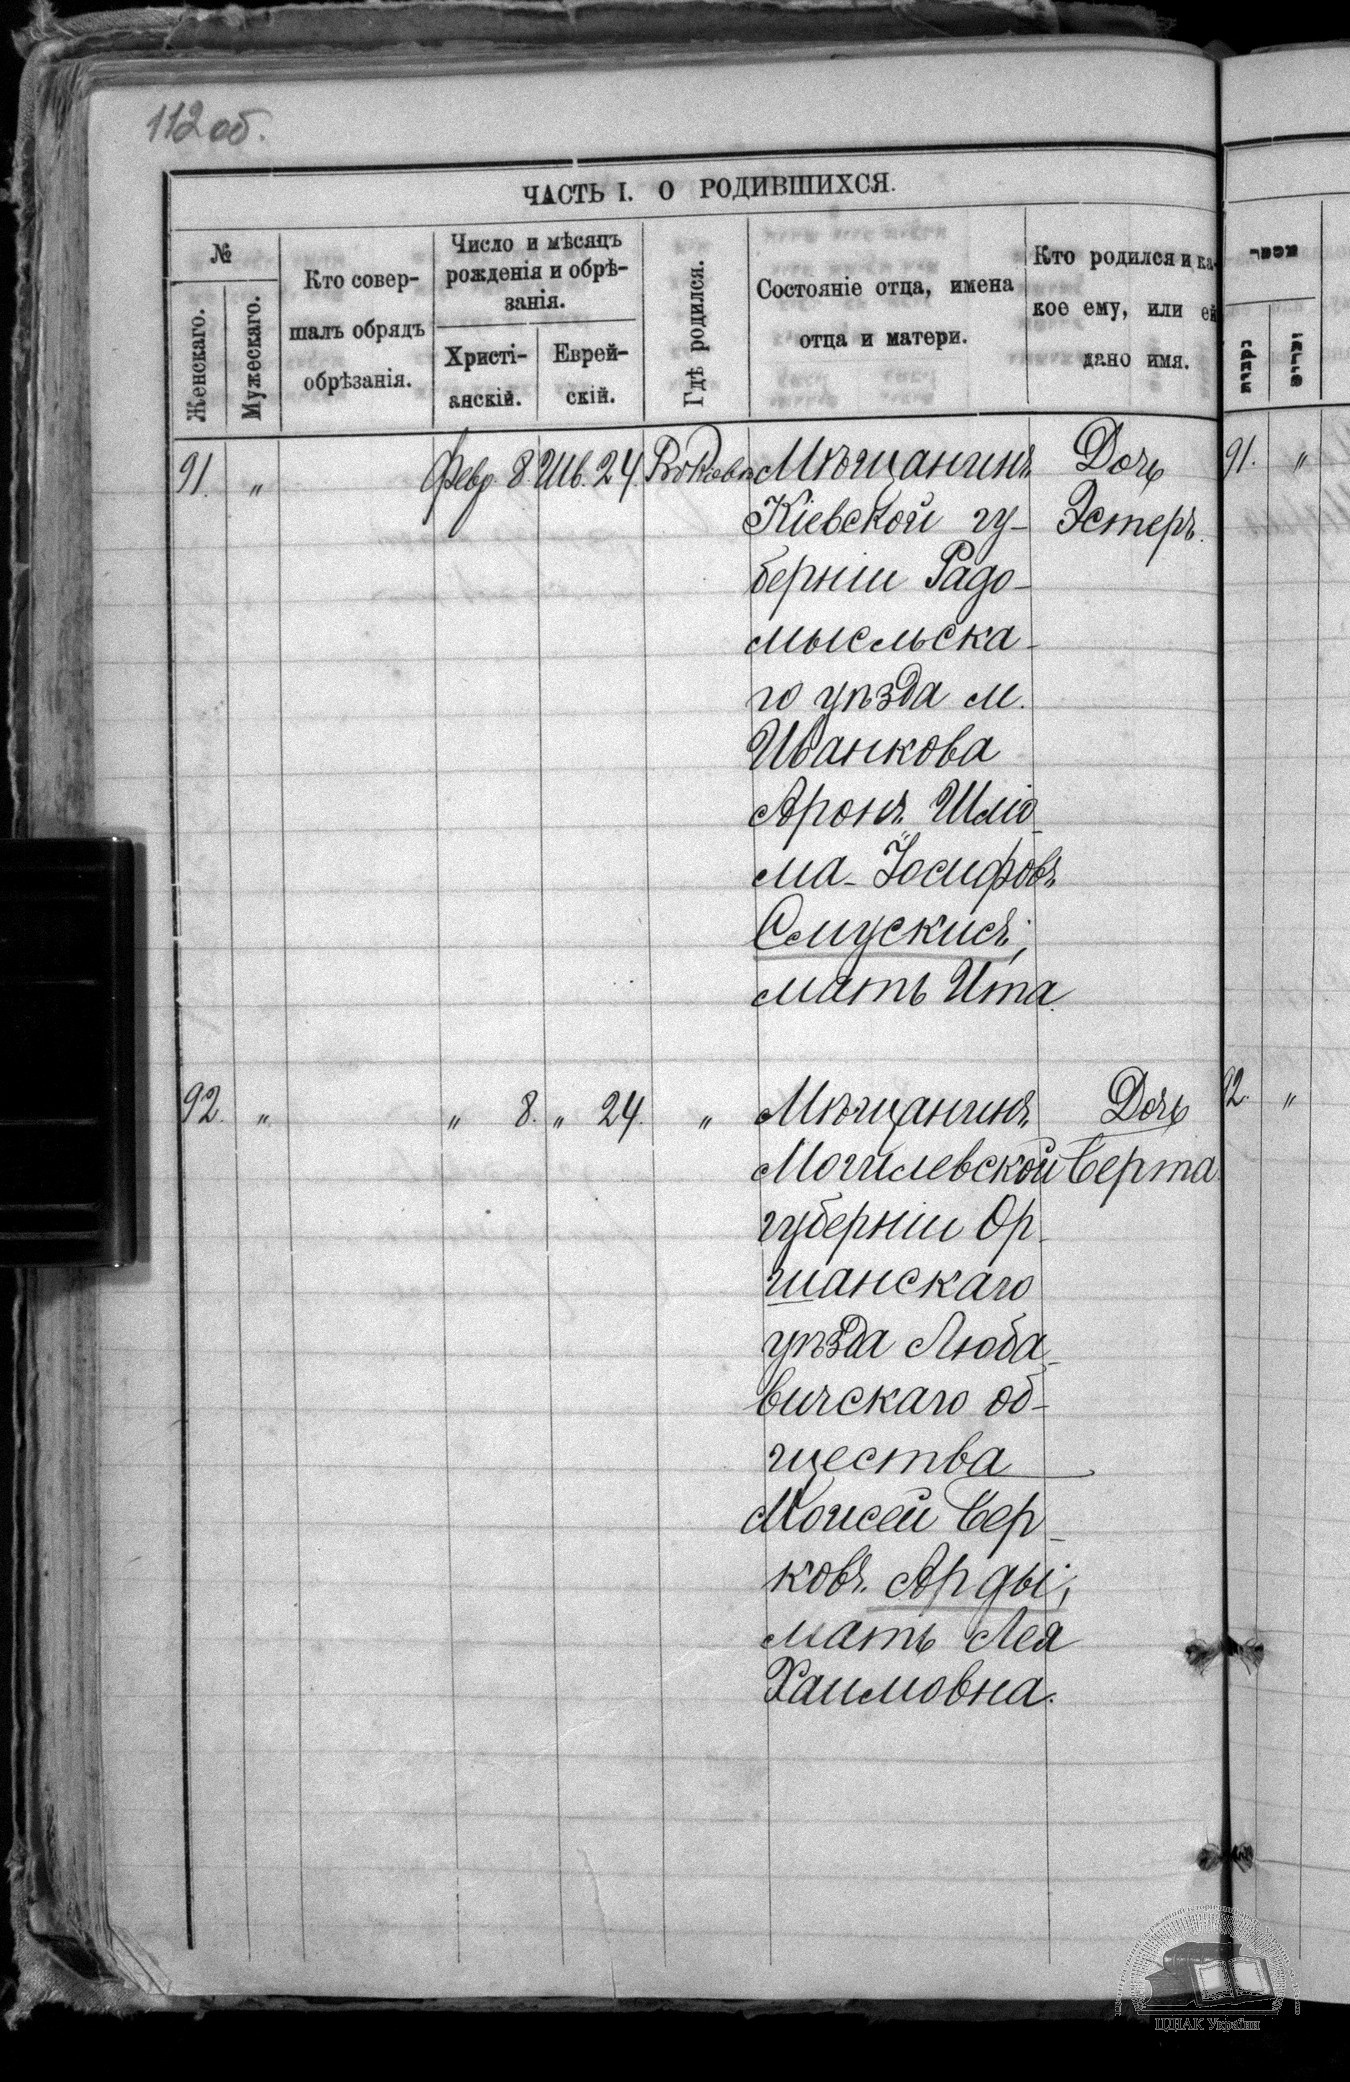 112 об.
ЧАСТЬ I. О РОДИВШИХСЯ.
№
Женскаго.
Мужескаго.
Кто совер-
шалъ обрядъ
обрѣзанія.
Число и мѣсяцъ
рожденія и обрѣ-
занія.
Христі-
анскій.
Еврей-
скій.
Гдѣ родился.
Состояніе отца, имена
отца и матери.
Кто родился и ка-
кое ему, или ей
дано имя.
91. „ Февр. 8. Шв. 24. Мѣщанинъ Дочь
Кіевской гу- Эстеръ.
берніи Радо-
мысльска-
го уѣзда м.
Иванкова
Аронъ Шліо-
ма-Іосифовъ
Смускисъ;
мать Ита.
92. „ „ 8. „ 24. „ Мѣщанинъ Дочь
Могилевской Берта.
губерніи Ор-
шанскаго
уѣзда Люба-
вичскаго об-
щества
Моисей Бер-
ковъ Арды;
мать Лея
Хаимовна.
מספר
נקבות
זכרים
91. „
92. „
ЦДІАК України